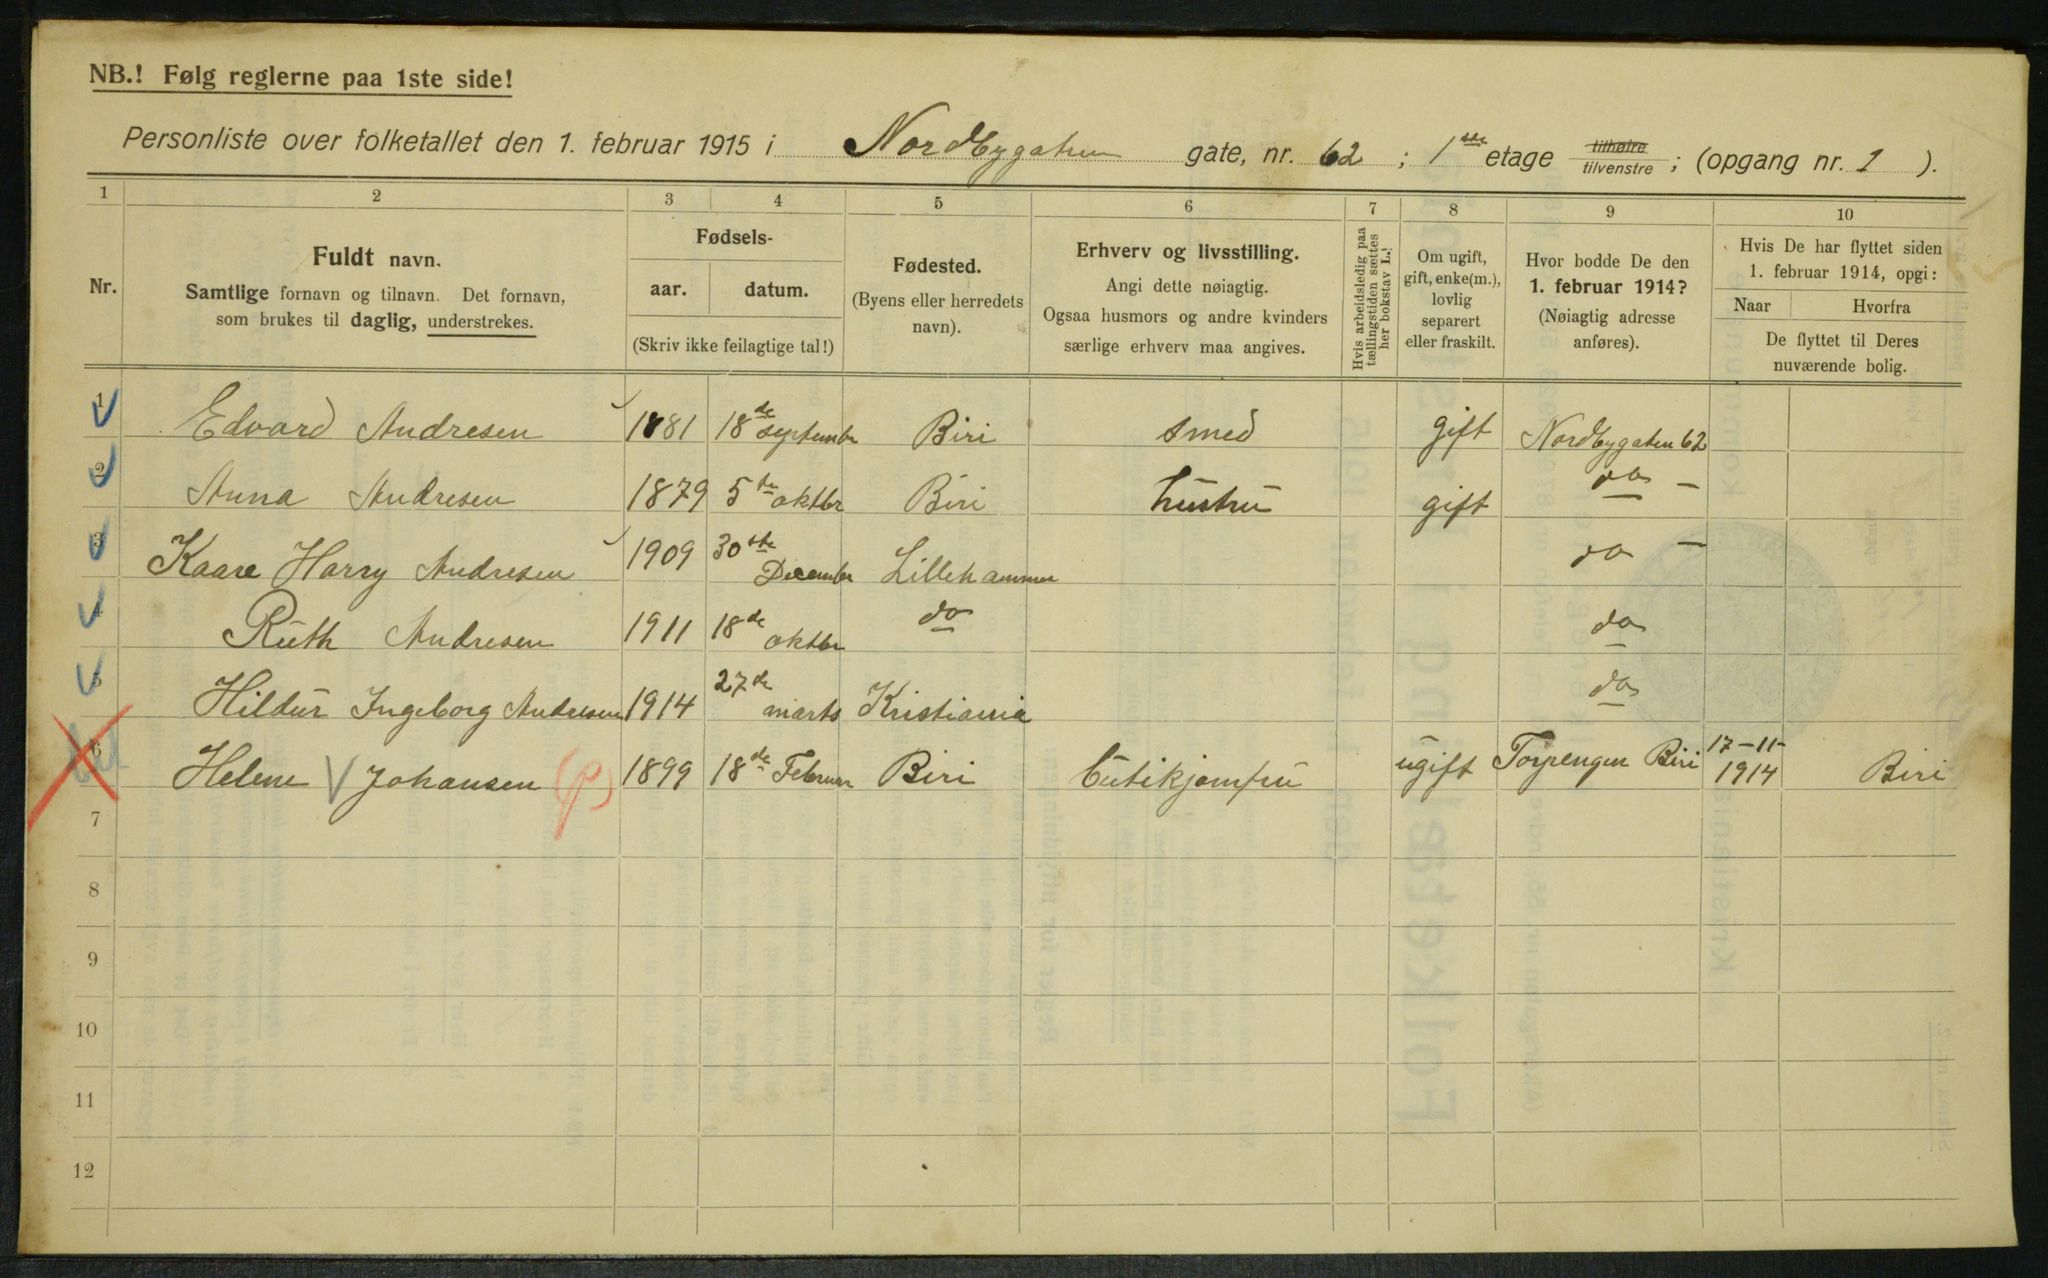 NB.! Følg reglerne paa 1ste side!
Personliste over folketallet den 1. februar 1915 i Nordbygaten gate, nr. 62 ; 1ste etage tilhøire tilvenstre ; (opgang nr. 1 ).
1 2 3 4 5 6 7 8 9 10
Nr.
Fuldt navn.
Samtlige fornavn og tilnavn. Det fornavn,
som brukes til daglig, understrekes.
Fødsels-
aar. datum.
(Skriv ikke feilagtige tal!)
Fødested.
(Byens eller herredets
navn).
Erhverv og livsstilling.
Angi dette nøiagtig.
Ogsaa husmors og andre kvinders
særlige erhverv maa angives.
Hvis arbeidsledig paa
tællingstiden sættes
her bokstav L.!
Om ugift,
gift, enke(m.),
lovlig
separert
eller fraskilt.
Hvor bodde De den
1. februar 1914?
(Nøiagtig adresse
anføres).
Hvis De har flyttet siden
1. februar 1914, opgi:
Naar Hvorfra
De flyttet til Deres
nuværende bolig.
1 Edvard Andresen 1881 18de september Biri smed gift Nordbygaten 62
2 Anna Andresen 1879 5te oktbr Biri hustru gift do -
3 Kaare Harry Andresen 1909 30te December Lillehammer do -
4 Ruth Andresen 1911 18de oktbr do do
5 Hildur Ingeborg Andresen 1914 27de marts Kristiania do
6 Helene Johansen (p) 1899 18de Februar Biri butikjomfru ugift Torpengen Biri 17-11-1914 Biri
7
8
9
10
11
12